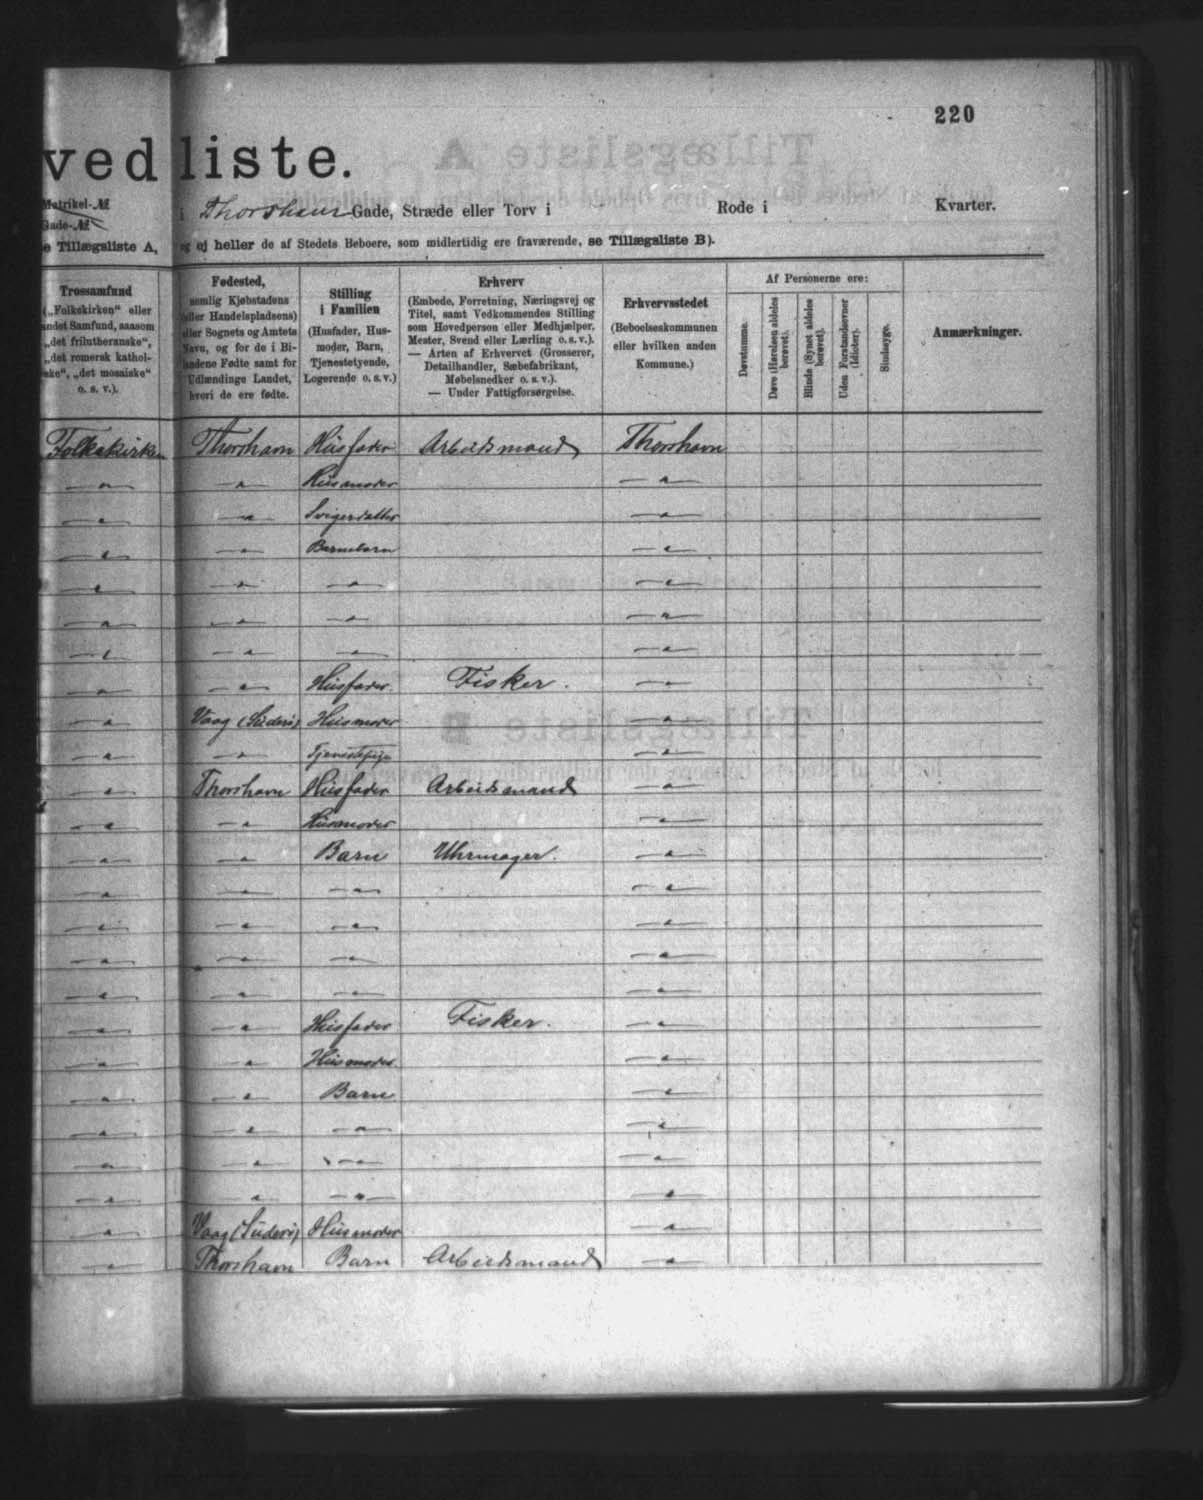 220
vedliste.
Matrikel-№
Gade-№
i Thorshavn Gade, Stræde eller Torv i Rode i Kvarter.
e Tillægsliste A, og ej heller de af Stedets Beboere, som midlertidig ere fraværende, se Tillægsliste B).
Trossamfund
(„Folkekirken“ eller
andet Samfund, saasom
„det frilutheranske“,
„det romersk kathol-
ske“, „det mosaiske“
o. s. v.).
Fødested,
nemlig Kjøbstadens
(eller Handelspladsens)
eller Sognets og Amtets
Navn, og for de i Bi-
landene Fødte samt for
Udlændinge Landet,
hvori de ere fødte.
Stilling
i Familien
(Husfader, Hus-
moder, Barn,
Tjenestetyende,
Logerende o. s. v.)
Erhverv
(Embede, Forretning, Næringsvej og
Titel, samt Vedkommendes Stilling
som Hovedperson eller Medhjælper,
Mester, Svend eller Lærling o. s. v.).
— Arten af Erhvervet (Grosserer,
Detailhandler, Sæbefabrikant,
Møbelsnedker o. s. v.).
— Under Fattigforsørgelse.
Erhvervsstedet
(Beboelseskommunen
eller hvilken anden
Kommune.)
Af Personerne ere:
Døvstumme.
Døve (Hørelsen aldeles
berøvet).
Blinde (Synet aldeles
berøvet).
Uden Forstandsevner
(Idioter).
Sindssyge.
Anmærkninger.
Folkekirken Thorshavn Husfader Arbeidsmand Thorshavn
—"— —"— Husmoder —"—
—"— —"— Svigerdatter —"—
—"— —"— Barnebarn —"—
—"— —"— —"— —"—
—"— —"— —"— —"—
—"— —"— —"— —"—
—"— —"— Husfader Fisker. —"—
—"— Vaag (Süderö) Husmoder —"—
—"— —"— Tjenestepige —"—
—"— Thorshavn Husfader Arbeidsmand —"—
—"— —"— Husmoder —"—
—"— —"— Barn Uhrmager. —"—
—"— —"— —"— —"—
—"— —"— —"— —"—
—"— —"— —"— —"—
—"— —"— —"— —"—
—"— —"— Husfader Fisker. —"—
—"— —"— Husmoder —"—
—"— —"— Barn —"—
—"— —"— —"— —"—
—"— —"— —"— —"—
—"— —"— —"— —"—
—"— Vaag (Süderö) Husmoder —"—
—"— Thorshavn Barn Arbeidsmand —"—